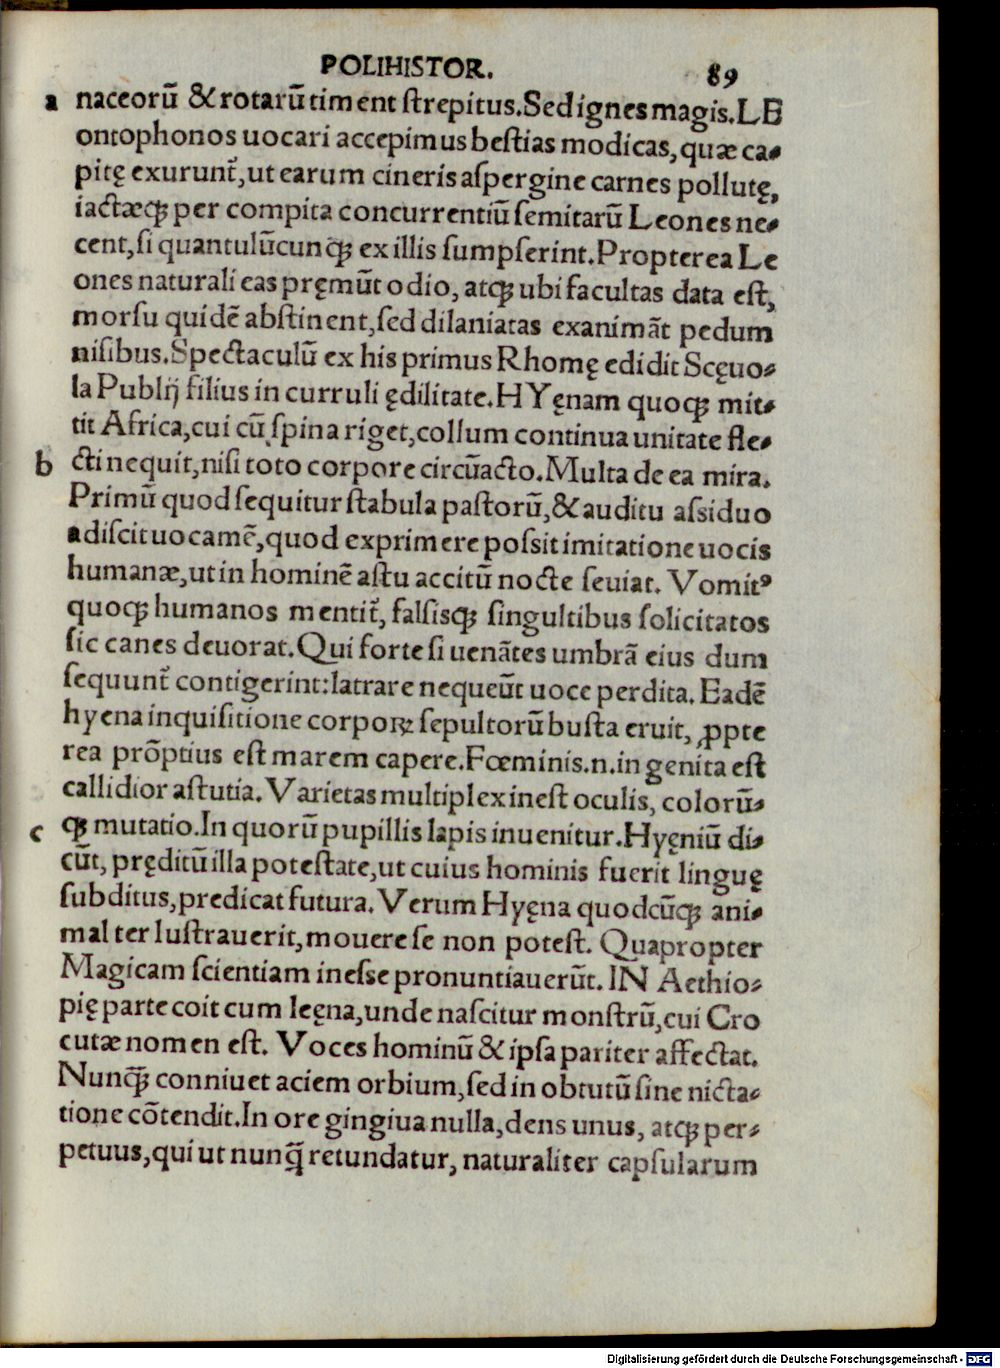 POLIHISTOR. 89
a naceorū & rotarū timent ſtrepitus. Sed ignes magis. LE
ontophonos uocari accepimus beſtias modicas, quæ ca-
pitę exurunt᷑, ut earum cineris aſpergine carnes pollutę,
iactæq; per compita concurrentiū ſemitarū Leones ne-
cent, ſi quantulūcunq; ex illis ſumpſerint. Propterea Le
ones naturali eas pręmūt odio, atq; ubi facultas data eſt,
morſu quidē abſtinent, ſed dilaniatas exanimāt pedum
niſibus. Spectaculū ex his primus Rhomę edidit Scęuo-
la Publij filius in curruli ędilitate. HYęnam quoq; mit-
tit Africa, cui cū ſpina riget, collum continua unitate fle-
b cti nequit, niſi toto corpore circūacto. Multa de ea mira.
Primū quod ſequitur ſtabula paſtorū, & auditu aſsiduo
adiſcit uocamē, quod exprimere poſsit imitatione uocis
humanæ, ut in hominē aſtu accitū nocte ſeuiat. Vomitꝰ
quoq; humanos mentit᷑, falſisq; ſingultibus ſolicitatos
ſic canes deuorat. Qui forte ſi uenātes umbrā eius dum
ſequunt᷑ contigerint: latrare nequeūt uoce perdita. Eadē
hyena inquiſitione corpoꝝ ſepultorū buſta eruit, ꝓpte
rea prōptius eſt marem capere. Fœminis .n. ingenita eſt
callidior aſtutia. Varietas multiplex ineſt oculis, colorū-
c q; mutatio. In quorū pupillis lapis inuenitur. Hyęniū di-
cūt, pręditū illa poteſtate, ut cuius hominis fuerit linguę
ſubditus, predicat futura. Verum Hyęna quodcūq; ani-
mal ter luſtrauerit, mouere ſe non poteſt. Quapropter
Magicam ſcientiam ineſse pronuntiauerūt. IN Aethio-
pię parte coit cum leęna, unde naſcitur monſtrū, cui Cro
cutæ nomen eſt. Voces hominū & ipſa pariter affectat.
Nunq̄; conniuet aciem orbium, ſed in obtutū ſine nicta-
tione cōtendit. In ore gingiua nulla, dens unus, atq; per-
petuus, qui ut nunq̄ retundatur, naturaliter capſularum
Digitalisierung gefördert durch die Deutsche Forschungsgemeinschaft - DFG